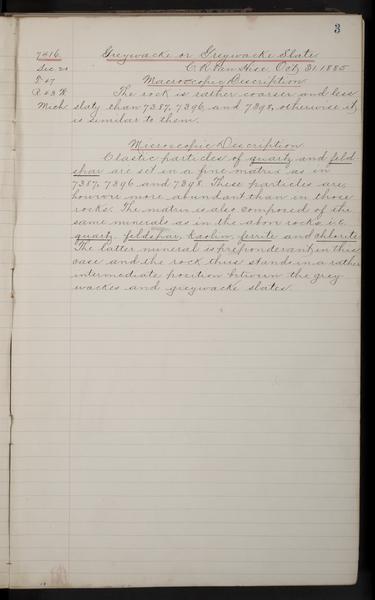 3
7416. Greywacke or Greywacke Slate
Sec 20 C. R. Van Hise. Oct, 31, 1885
T 47 Macroscopic Description
R 43 W The rock is rather coarser and less
Mich slaty than 7387, 7396 and 7398, otherwise it
is similar to them.
Microscopic Description
Clastic particles of quartz and feld-
spar are set in a fine matrix as in
7387, 7396 and 7398. These particles are
however more abundant than in those
rocks. The matrix is also composed of the
same minerals as in the above rocks i.e.
quartz, feldspar, kaolin, ferrite and chlorite.
The latter mineral is preponderant in this
case and the rock thus stands in a rather
intermediate position between the grey
wackes and greywacke slates.